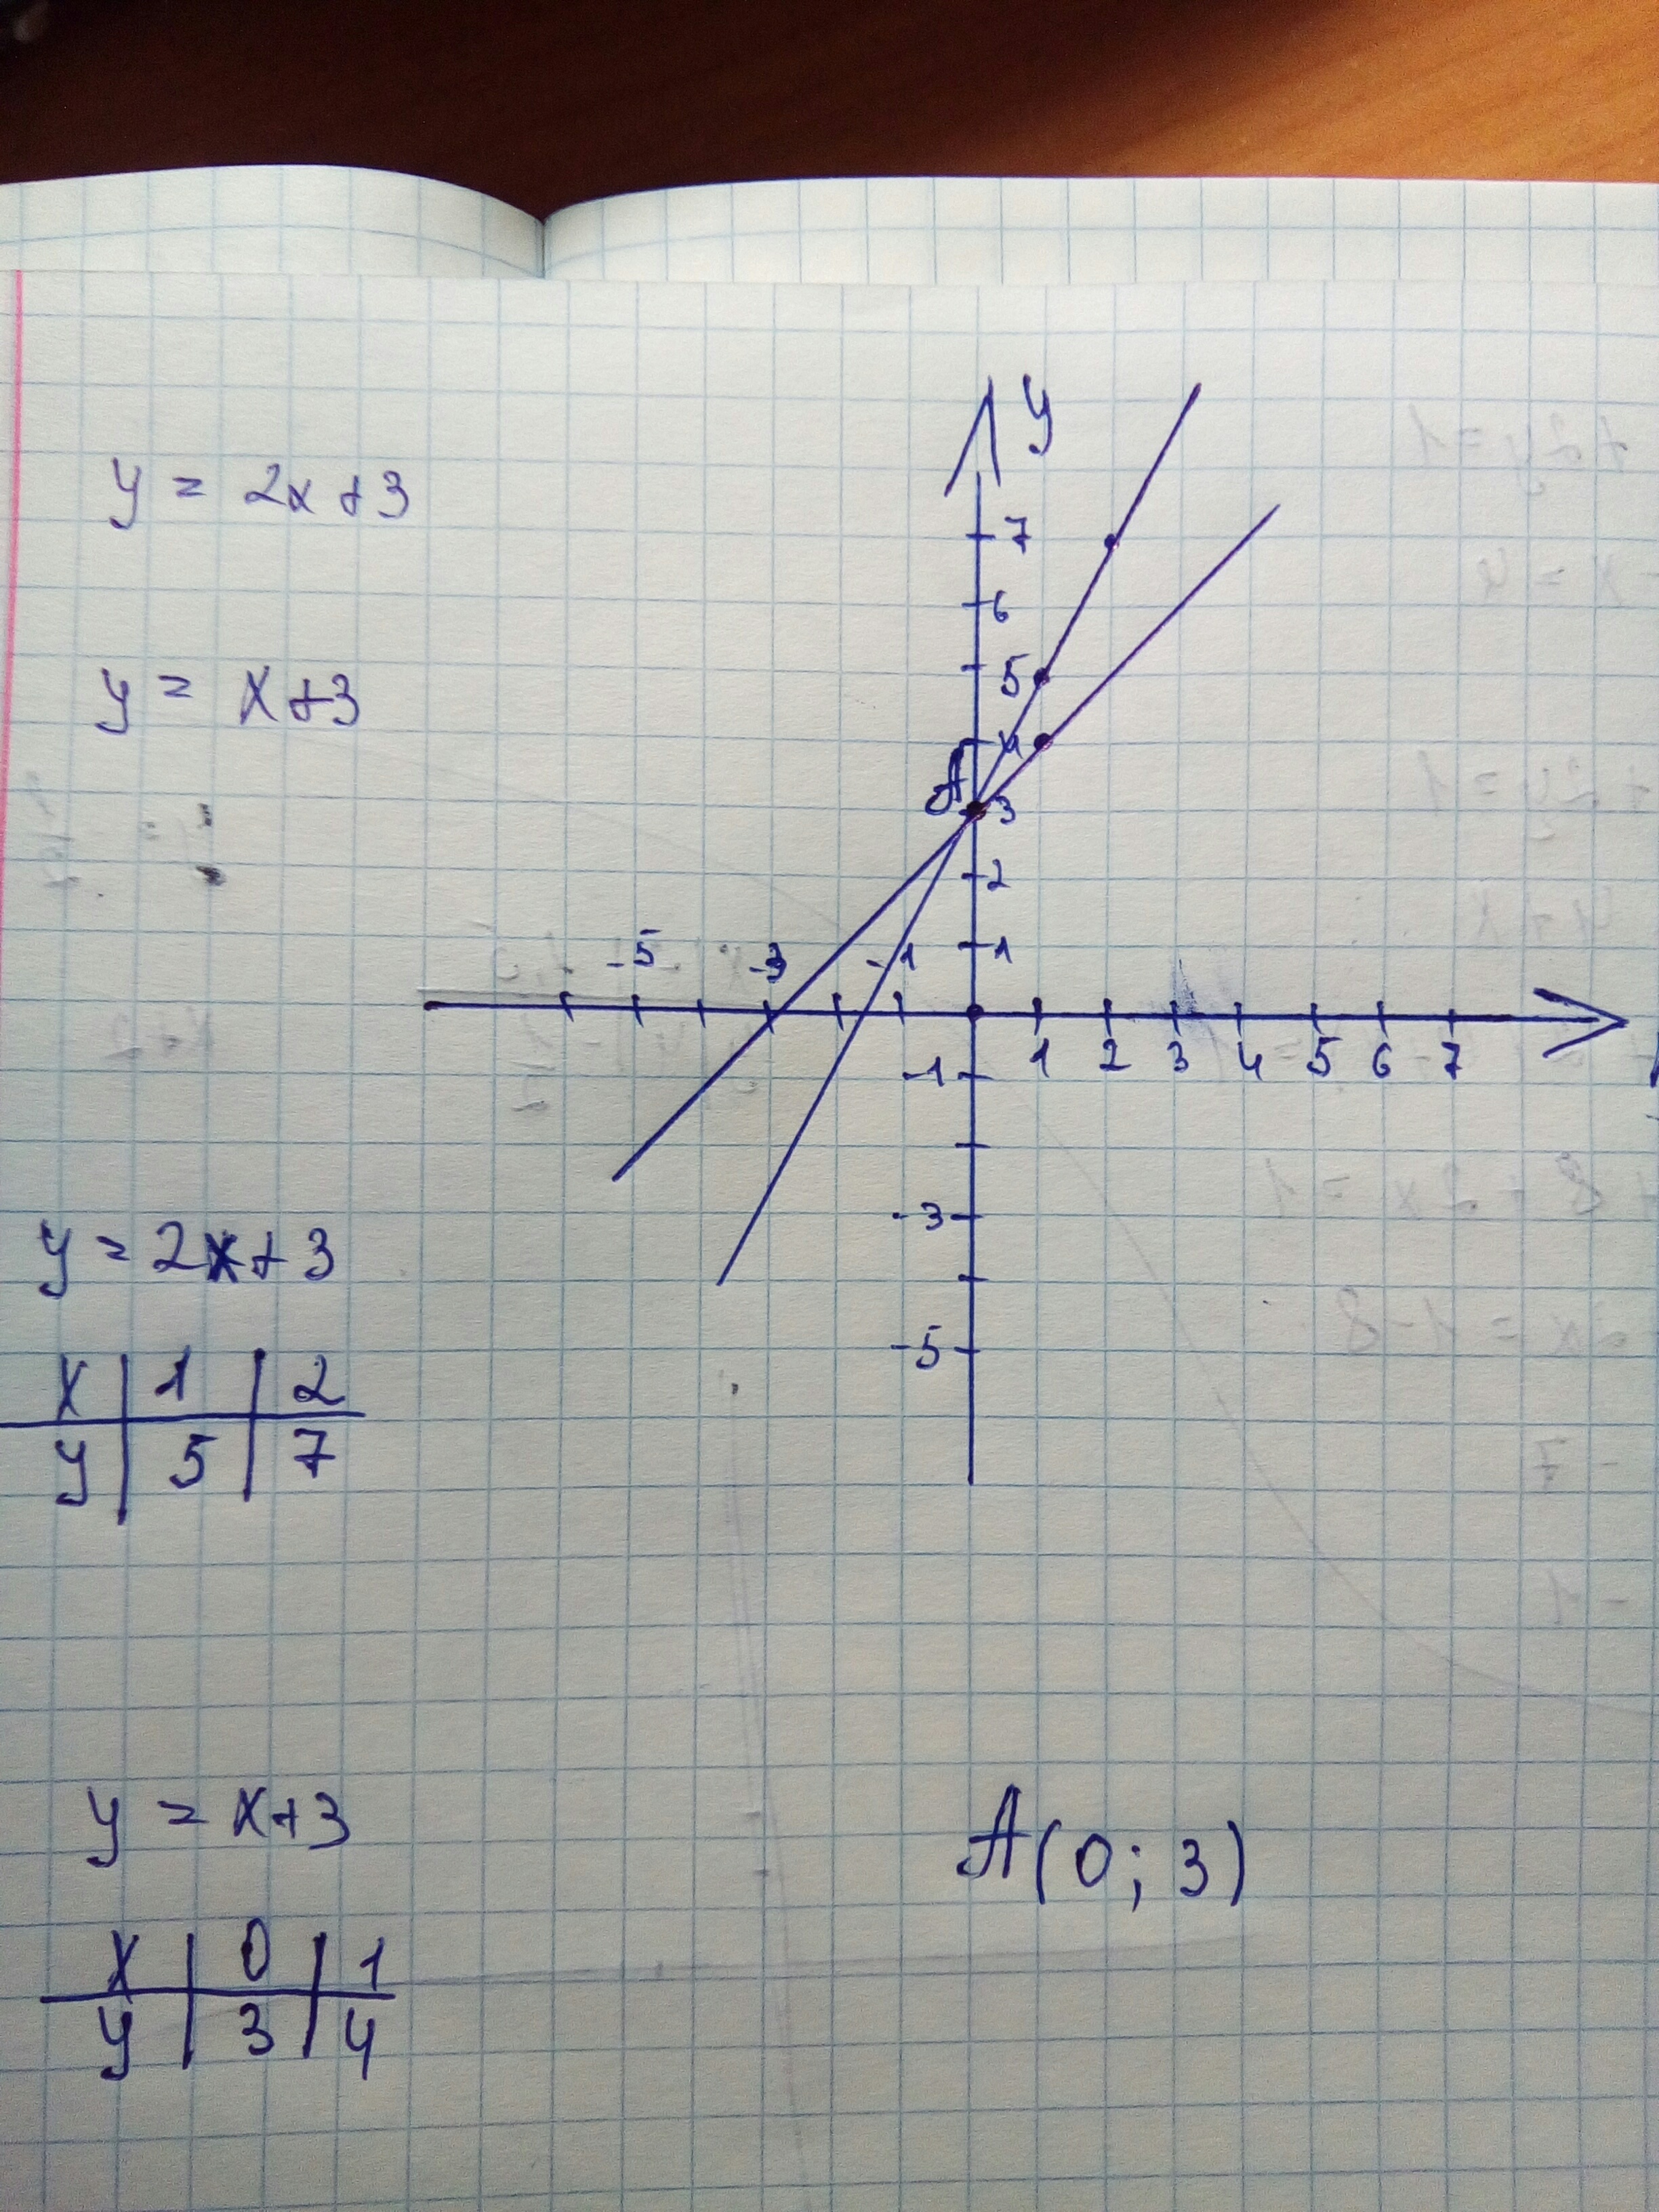 y = 2x+3
y = x+3
y
7
6
5
4
A
3
2
1
-5 -3 -1
1 2 3 4 5 6 7
-1
-3
-5
y = 2x+3
x | 1 | 2
y | 5 | 7
y = x+3
x | 0 | 1
y | 3 | 4
A(0; 3)